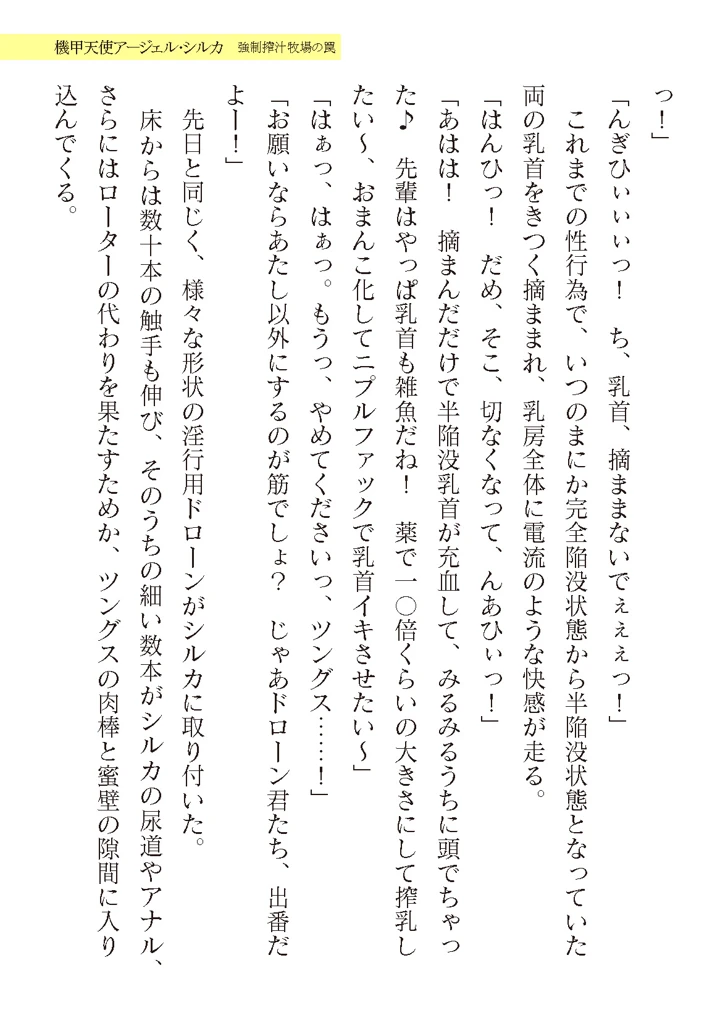 機甲天使アージェル・シルカ　強制搾汁牧場の罠
っ！」
「んぎひぃぃぃっ！　ち、乳首、摘ままないでぇぇぇっ！」
　これまでの性行為で、いつのまにか完全陥没状態から半陥没状態となっていた
両の乳首をきつく摘ままれ、乳房全体に電流のような快感が走る。
「はんひっ！　だめ、そこ、切なくなって、んあひぃっ！」
「あはは！　摘まんだだけで半陥没乳首が充血して、みるみるうちに頭でちゃっ
た♪　先輩はやっぱ乳首も雑魚だね！　薬で一〇倍くらいの大きさにして搾乳し
たい～、おまんこ化してニプルファックで乳首イキさせたい～」
「はぁっ、はぁっ。もうっ、やめてくださいっ、ツングス……！」
「お願いならあたし以外にするのが筋でしょ？　じゃあドローン君たち、出番だ
よー！」
　先日と同じく、様々な形状の淫行用ドローンがシルカに取り付いた。
　床からは数十本の触手も伸び、そのうちの細い数本がシルカの尿道やアナル、
さらにはローターの代わりを果たすためか、ツングスの肉棒と蜜壁の隙間に入り
込んでくる。